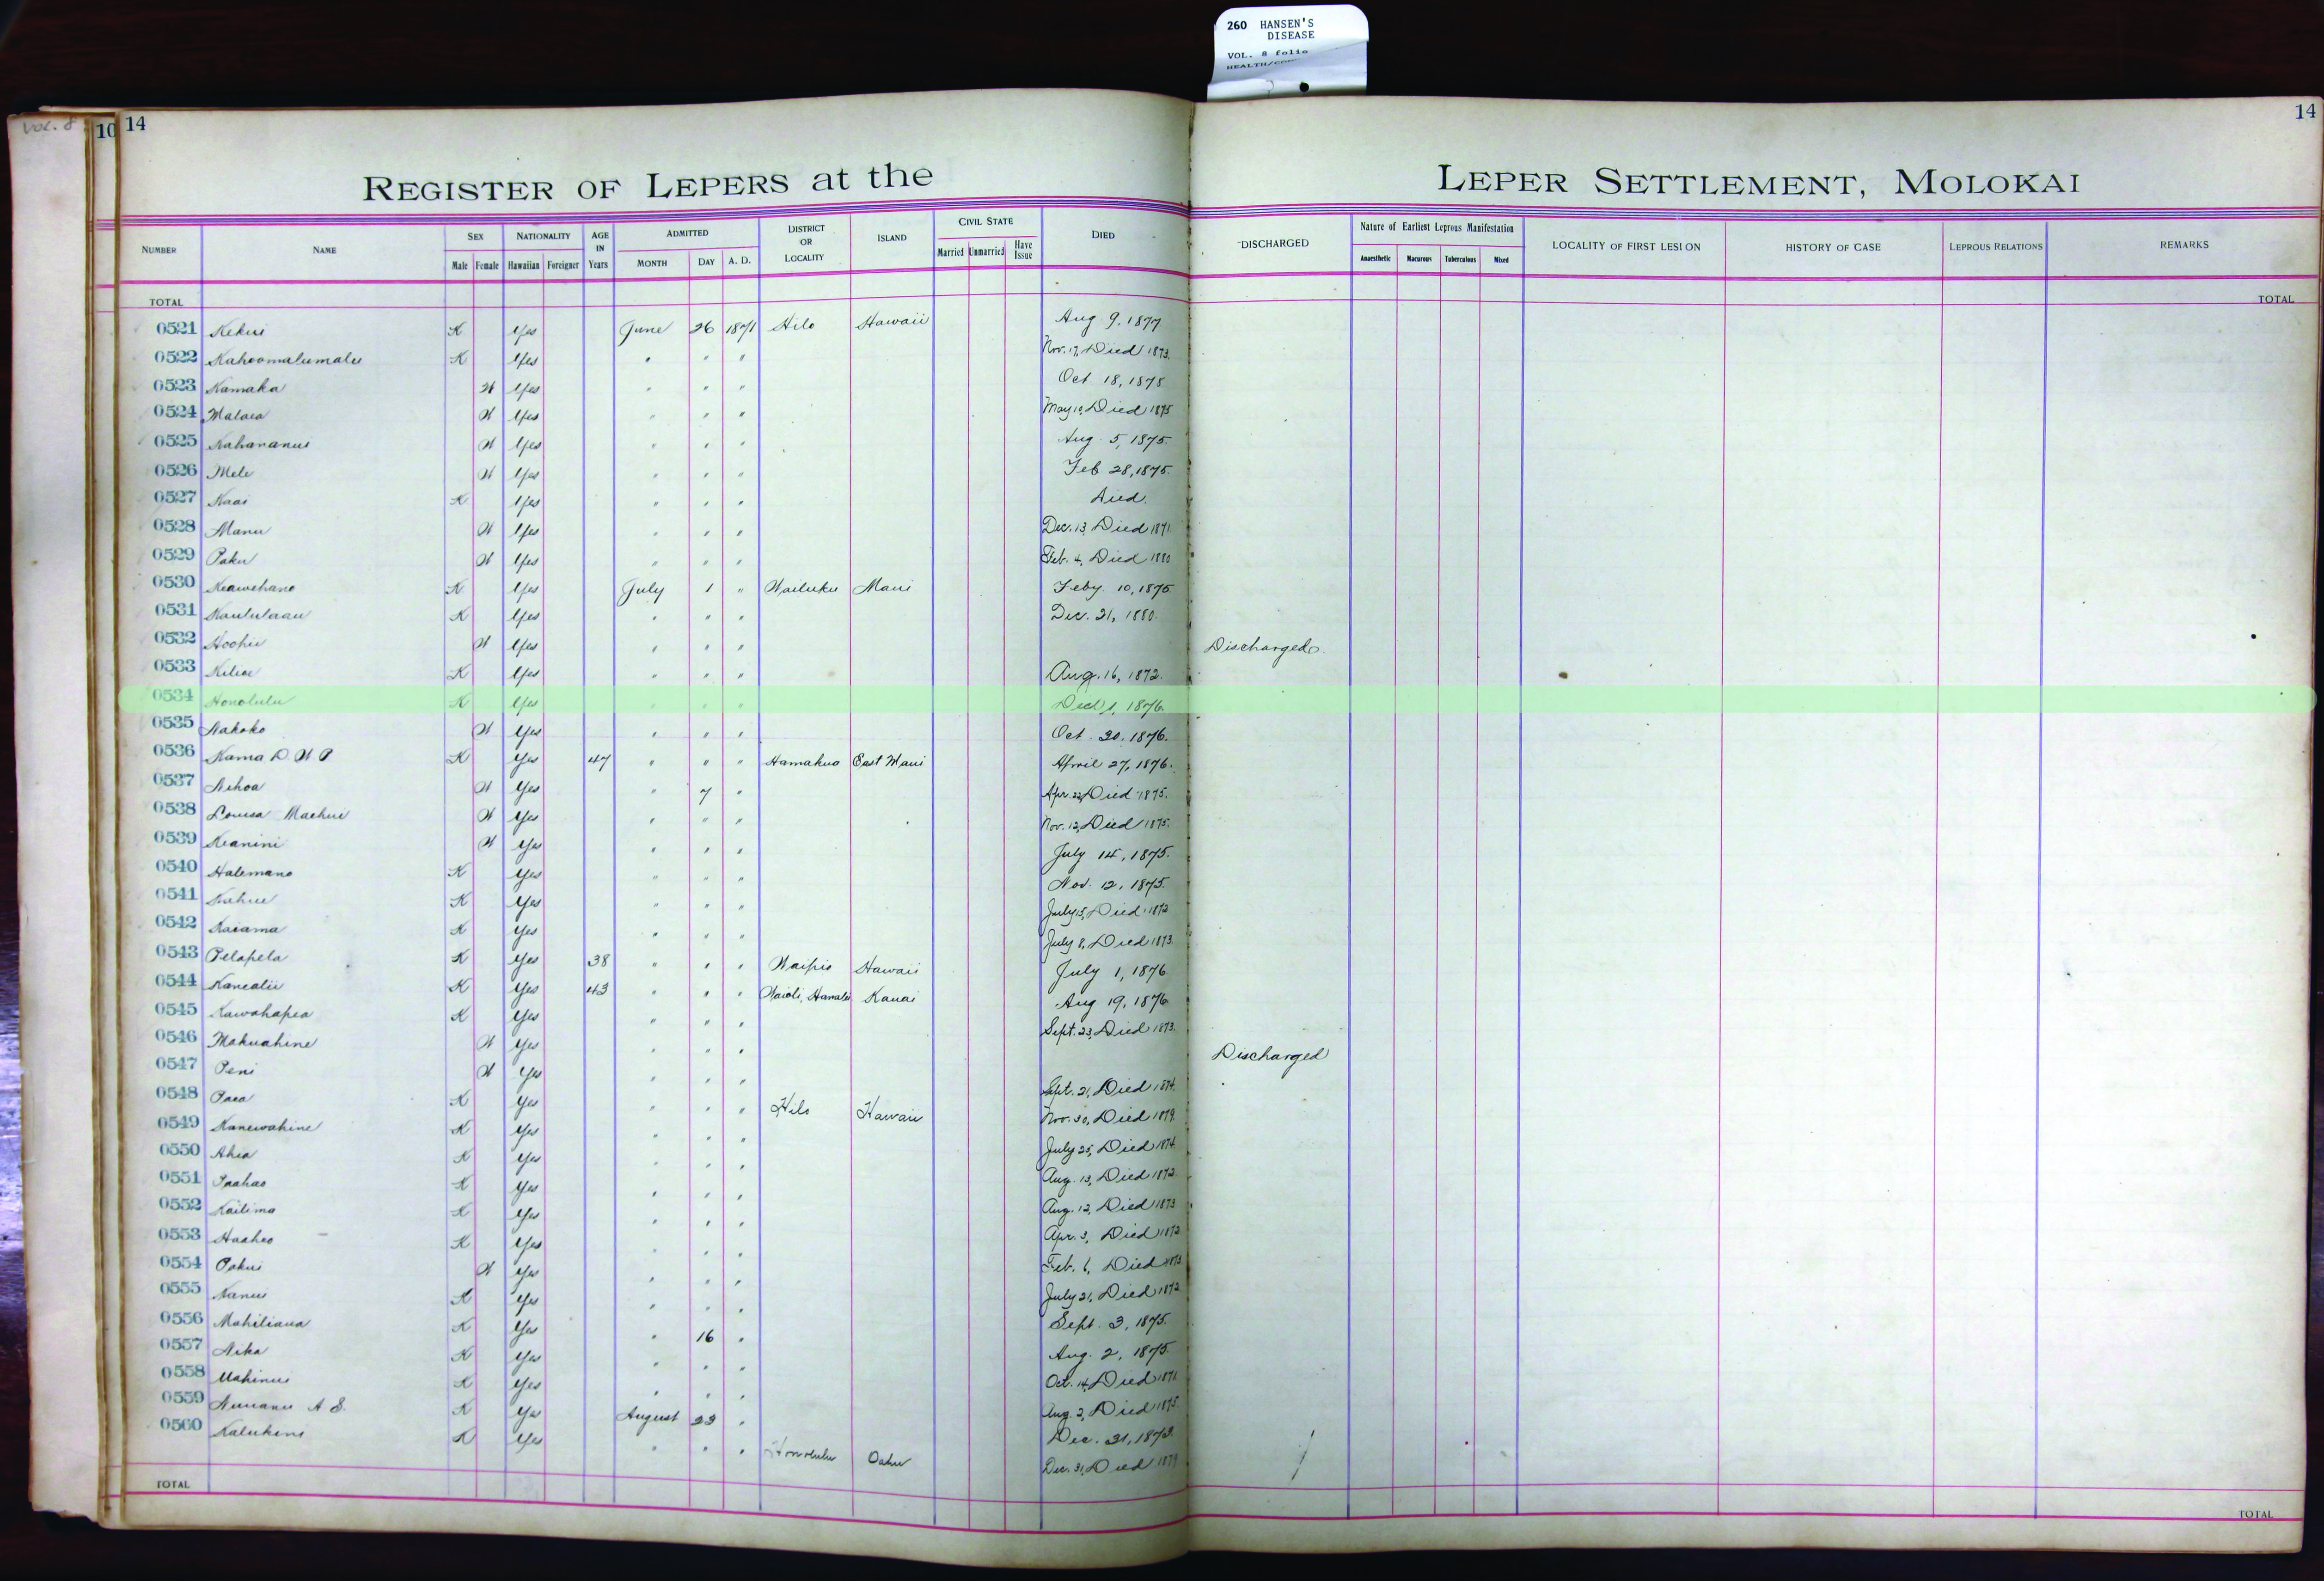 260 HANSEN'S
DISEASE
VOL. 8 folio
Vol. 8
10 14
14
REGISTER OF LEPERS at the LEPER SETTLEMENT, MOLOKAI
NUMBER NAME SEX NATIONALITY AGE IN Years ADMITTED DISTRICT OR LOCALITY ISLAND CIVIL STATE DIED DISCHARGED Nature of Earliest Leprous Manifestation LOCALITY OF FIRST LESION HISTORY OF CASE LEPROUS RELATIONS REMARKS
Male Female Hawaiian Foreigner MONTH DAY A. D. Married Unmarried Have Issue Anaesthetic Macurous Tuberculous Mixed
TOTAL TOTAL
0521 Kekui K Yes June 26 1871 Hilo Hawaii Aug 9, 1877
0522 Kahoomalumalu K Yes " " " Nov. 17, Died 1873.
0523 Kamaka W Yes " " " Oct 18, 1875
0524 Malaea W Yes " " " May 10, Died 1875
0525 Kahananui W Yes " " " Aug. 5, 1875.
0526 Mele W Yes " " " Feb 28, 1875.
0527 Kaai K Yes " " " Died.
0528 Manu W Yes " " " Dec. 13, Died 1871
0529 Paku W Yes " " " Feb. 4, Died 1880
0530 Keawehano K Yes July 1 " Wailuku Maui Feby 10, 1875
0531 Kaululaau K Yes " " " Dec. 21, 1880.
0532 Hoohii W Yes " " " Discharged.
0533 Kiliae K Yes " " " Aug. 16, 1872.
0534 Honolulu K Yes " " " Dec 1, 1876.
0535 Nakoko W Yes " " " Oct. 20, 1876.
0536 Kama D. W P K Yes 47 " " " Hamakua East Maui April 27, 1876.
0537 Nihoa W Yes " 7 " Apr. 22, Died 1875.
0538 Louisa Maehui W Yes " " " Nov. 12, Died 1875.
0539 Keanini W Yes " " " July 14, 1875.
0540 Halemano K Yes " " " Nov. 12, 1875.
0541 Kahue K Yes " " " July 15, Died 1872
0542 Kaiama K Yes " " " July 8, Died 1873.
0543 Pelapela K Yes 38 " " " Waipio Hawaii July 1, 1876
0544 Kanealii K Yes 43 " " " Waioli, Hanalei Kauai Aug 19, 1876
0545 Kawahapea K Yes " " " Sept. 23, Died 1873.
0546 Makuahine W Yes " " " Discharged
0547 Peni W Yes " " " Sept. 21, Died 1874.
0548 Paea K Yes " " " Hilo Hawaii Nov. 30, Died 1879.
0549 Kanewahine K Yes " " " July 25, Died 1874.
0550 Ahia K Yes " " " Aug. 13, Died 1872.
0551 Paahao K Yes " " " Aug. 12, Died 1873
0552 Kailima K Yes " " " Apr. 3, Died 1872
0553 Haaheo K Yes " " " Feb. 6, Died 1873
0554 Pakui W Yes " " " July 21, Died 1872
0555 Nanui K Yes " " " Sept. 3, 1875.
0556 Mahiliaua K Yes " 16 " Aug. 2, 1875.
0557 Nika K Yes " " " Oct. 14, Died 1871.
0558 Mahinui K Yes " " " Aug. 2, Died 1875.
0559 Nuuanu A S. K Yes August 23 " Dec. 31, 1873.
0560 Kalukini K Yes " " " Honolulu Oahu Dec. 31, Died 1879
TOTAL TOTAL